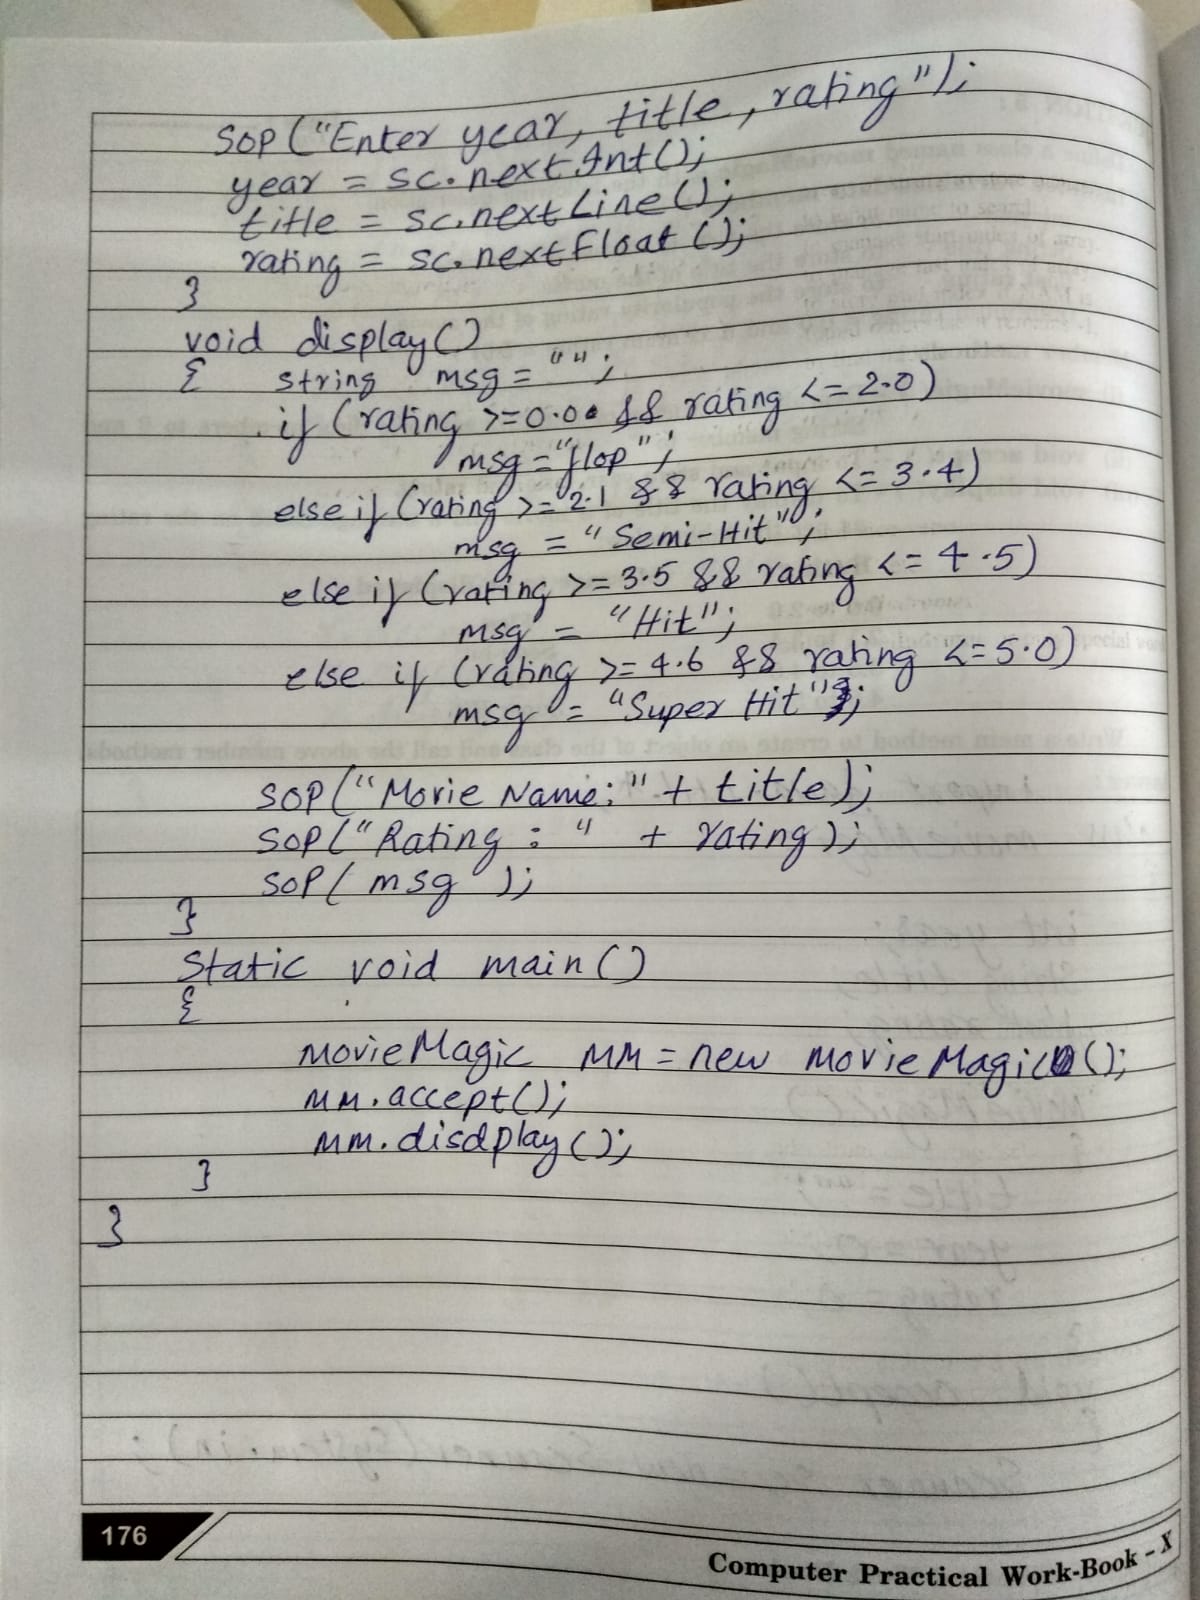 SOP("Enter year, title, rating");
year = sc.nextInt();
title = sc.nextLine();
rating = sc.nextFloat();
}
void display()
{ string msg = "";
if (rating >=0.0 && rating <=2.0)
msg="flop";
else if (rating >=2.1 && rating <= 3.4)
msg = "Semi-Hit";
else if (rating >= 3.5 && rating <= 4.5)
msg = "Hit";
else if (rating >= 4.6 && rating <=5.0)
msg = "Super Hit";
SOP("Movie Name:" + title);
SOP("Rating : " + rating);
SOP( msg );
}
Static void main()
{
movieMagic MM = new movieMagic();
MM.accept();
MM.disdplay();
}
}
176
Computer Practical Work-Book - X